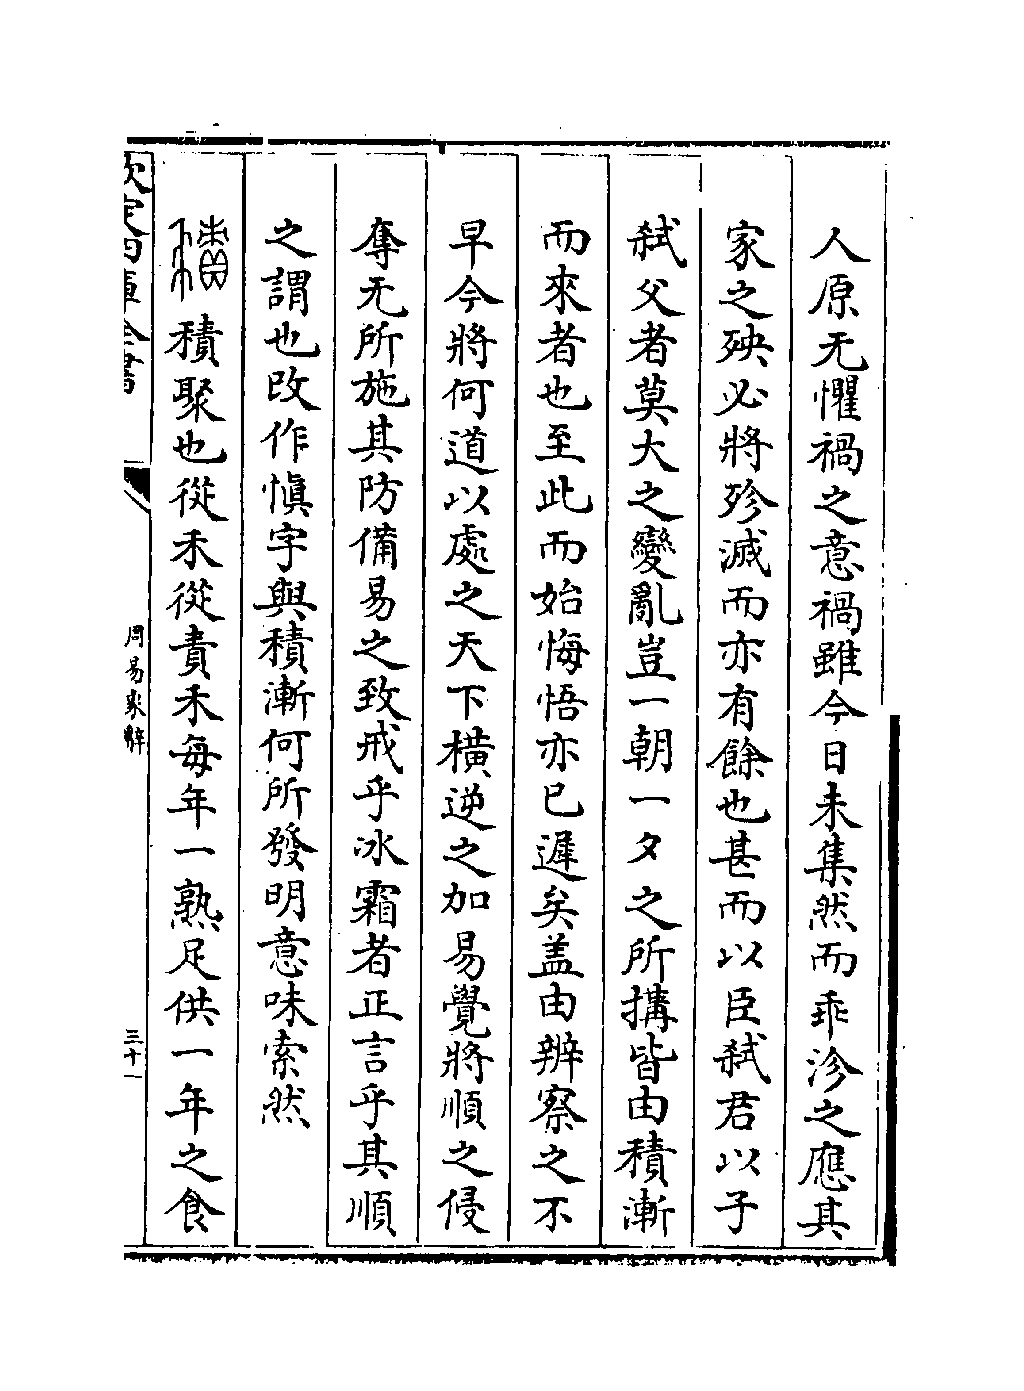 人原无懼禍之意禍雖今日未集然而乖沴之應其
家之殃必將殄滅而亦有餘也甚而以臣弑君以子
弑父者莫大之變亂豈一朝一夕之所搆皆由積漸
而來者也至此而始悔悟亦已遲矣盖由辨察之不
早今將何道以處之天下橫逆之加易覺將順之侵
奪无所施其防備易之致戒乎冰霜者正言乎其順
之謂也改作慎字與積漸何所發明意味索然
積聚也從禾從責禾每年一熟足供一年之食
欽定四庫全書
周易象辭
三十一